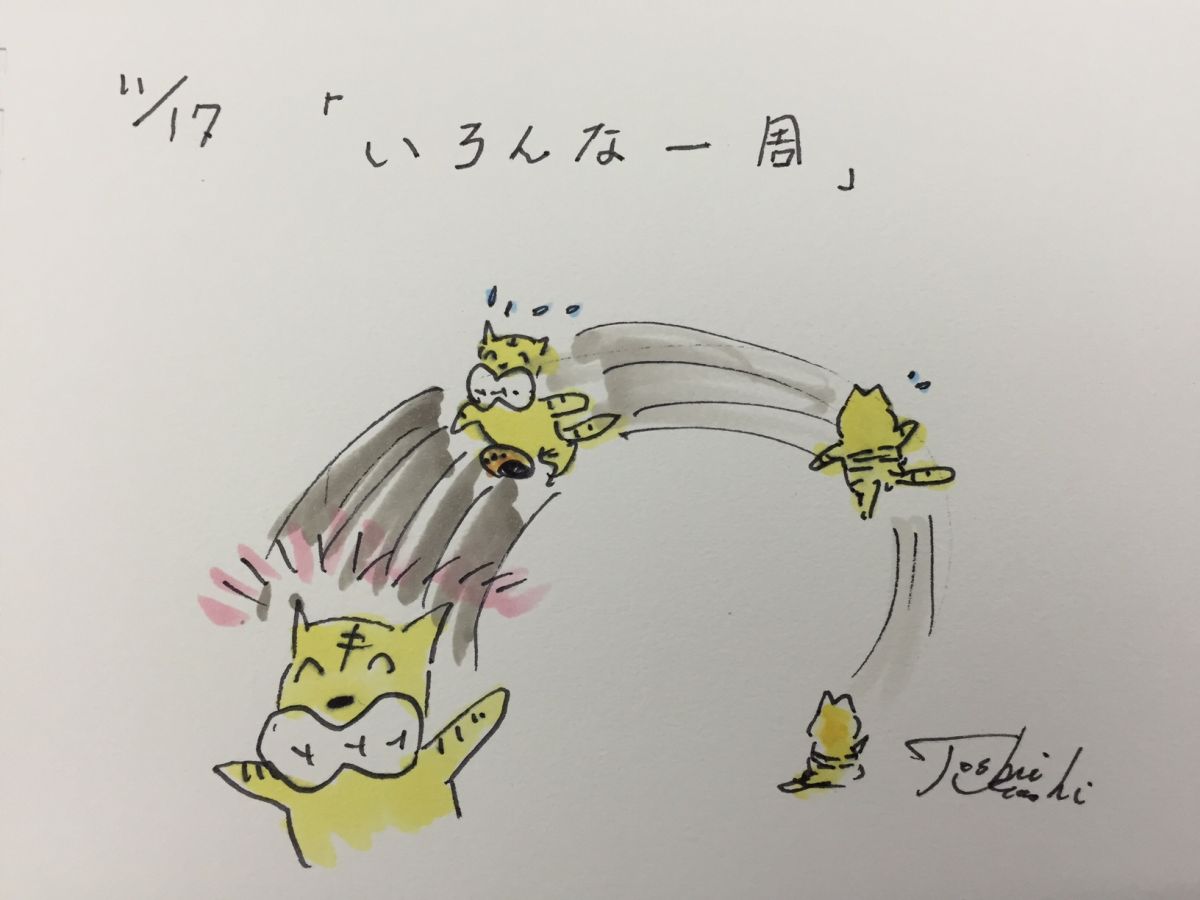 11/17 「いろんな一周」